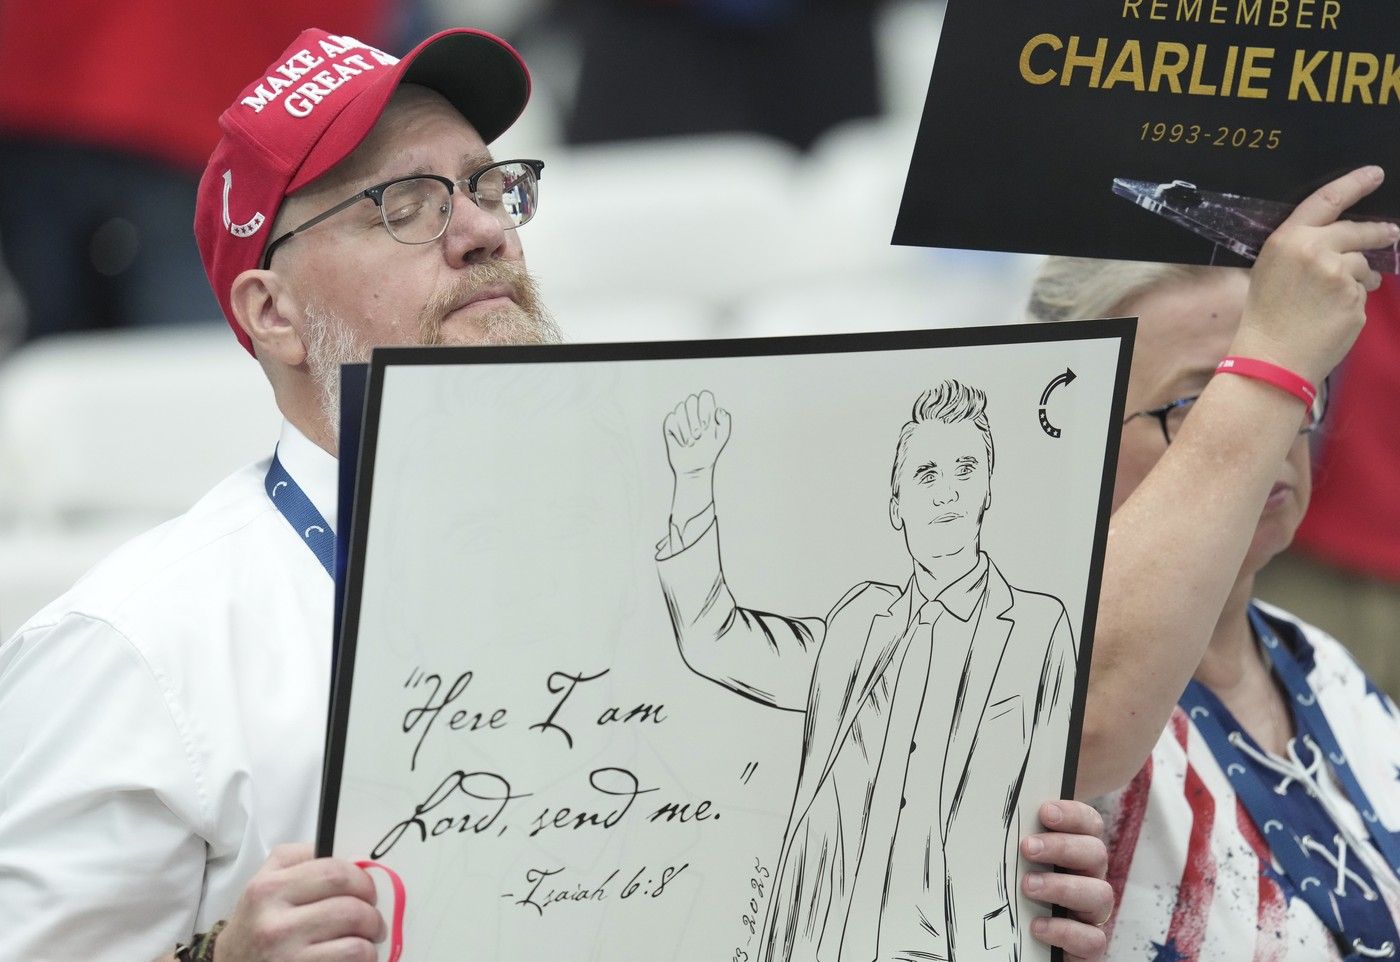 MAKE
GREAT
REMEMBER
CHARLIE KIRK
1993-2025
"Here I am
Lord, send me."
-Isaiah 6:8